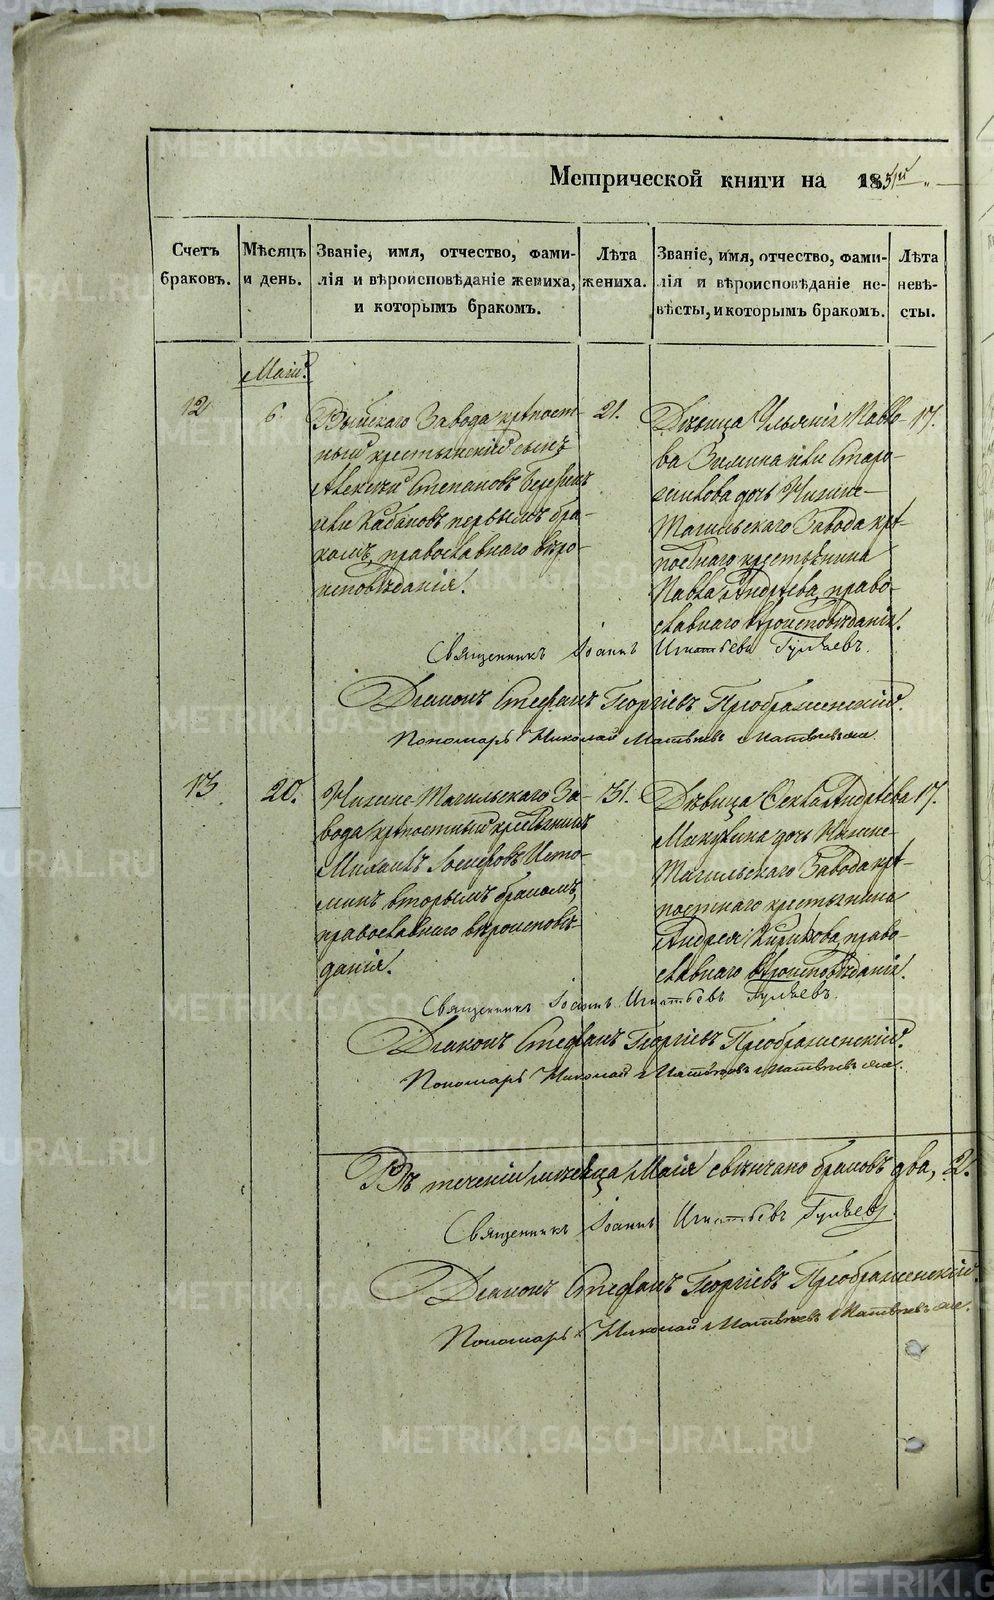 Метрической книги на 1851й
Счетъ браковъ.
Мѣсяцъ и день.
Званіе, имя, отчество, фами-
лія и вѣроисповѣданіе жениха,
и которымъ бракомъ.
Лѣта
жениха.
Званіе, имя, отчество, фами-
лія и вѣроисповѣданіе не-
вѣсты, и которымъ бракомъ.
Лѣта
невѣ-
сты.
Маій.
12
6.
Выйскаго Завода крѣпост-
ный крестьянскій сынъ
Алексѣй Степановъ
или Кабановъ первымъ бра-
комъ, православнаго вѣро-
исповѣданія.
21.
Дѣвица Ульянія Павло-
ва Зимина или Старо-
дочь Нижне-
Тагильскаго Завода крѣ-
постнаго крестьянина
Павла Андрѣева, право-
славнаго вѣроисповѣданія.
17.
Священникъ Іоаннъ Игнатьевъ Гуляевъ.
Діаконъ Стефанъ Георгіевъ Преображенскій.
Пономарь Николай Матвѣевъ
13
20.
Нижне-Тагильскаго За-
вода крѣпостный крестьянинъ
Михаилъ Іосифовъ Исто-
минъ вторымъ бракомъ,
православнаго вѣроисповѣ-
данія.
31.
Дѣвица Фекла Андрѣева
Микушина дочь Нижне-
Тагильскаго Завода крѣ-
постнаго крестьянина
Андрея Кирилова, право-
славнаго вѣроисповѣданія.
17.
Священникъ Іоаннъ Игнатьевъ Гуляевъ.
Діаконъ Стефанъ Георгіевъ Преображенскій.
Пономарь Николай Матвѣевъ
Въ теченіи мѣсяца Маія свѣнчано браковъ два, 2.
Священникъ Іоаннъ Игнатьевъ Гуляевъ.
Діаконъ Стефанъ Георгіевъ Преображенскій.
Пономарь Николай Матвѣевъ
METRIKI.GASO-URAL.RU